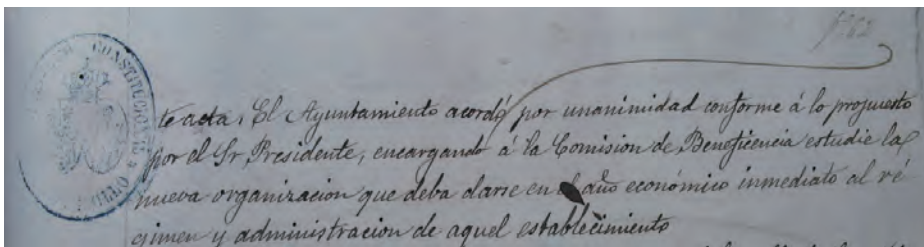 CONSTITUCIONAL
te acta. El Ayuntamiento acordó por unanimidad conforme á lo propuesto
por el Sr Presidente, encargando á la Comision de Beneficencia estudie la
nueva organizacion que deba darse en el año económico inmediato al ré
gimen y administracion de aquel establecimiento